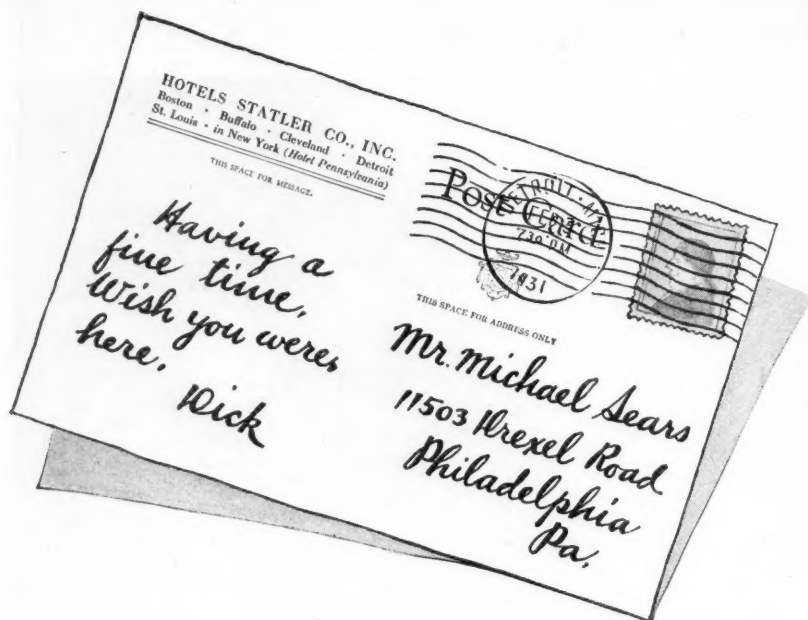 HOTELS STATLER CO., INC.
Boston · Buffalo · Cleveland · Detroit
St. Louis · in New York (Hotel Pennsylvania)
THIS SPACE FOR MESSAGE.
Having a
fine time.
Wish you were
here.
Dick
Post Card
DETROIT
FEB
730 PM
1931
THIS SPACE FOR ADDRESS ONLY
Mr. Michael Sears
11503 Drexel Road
Philadelphia
Pa.